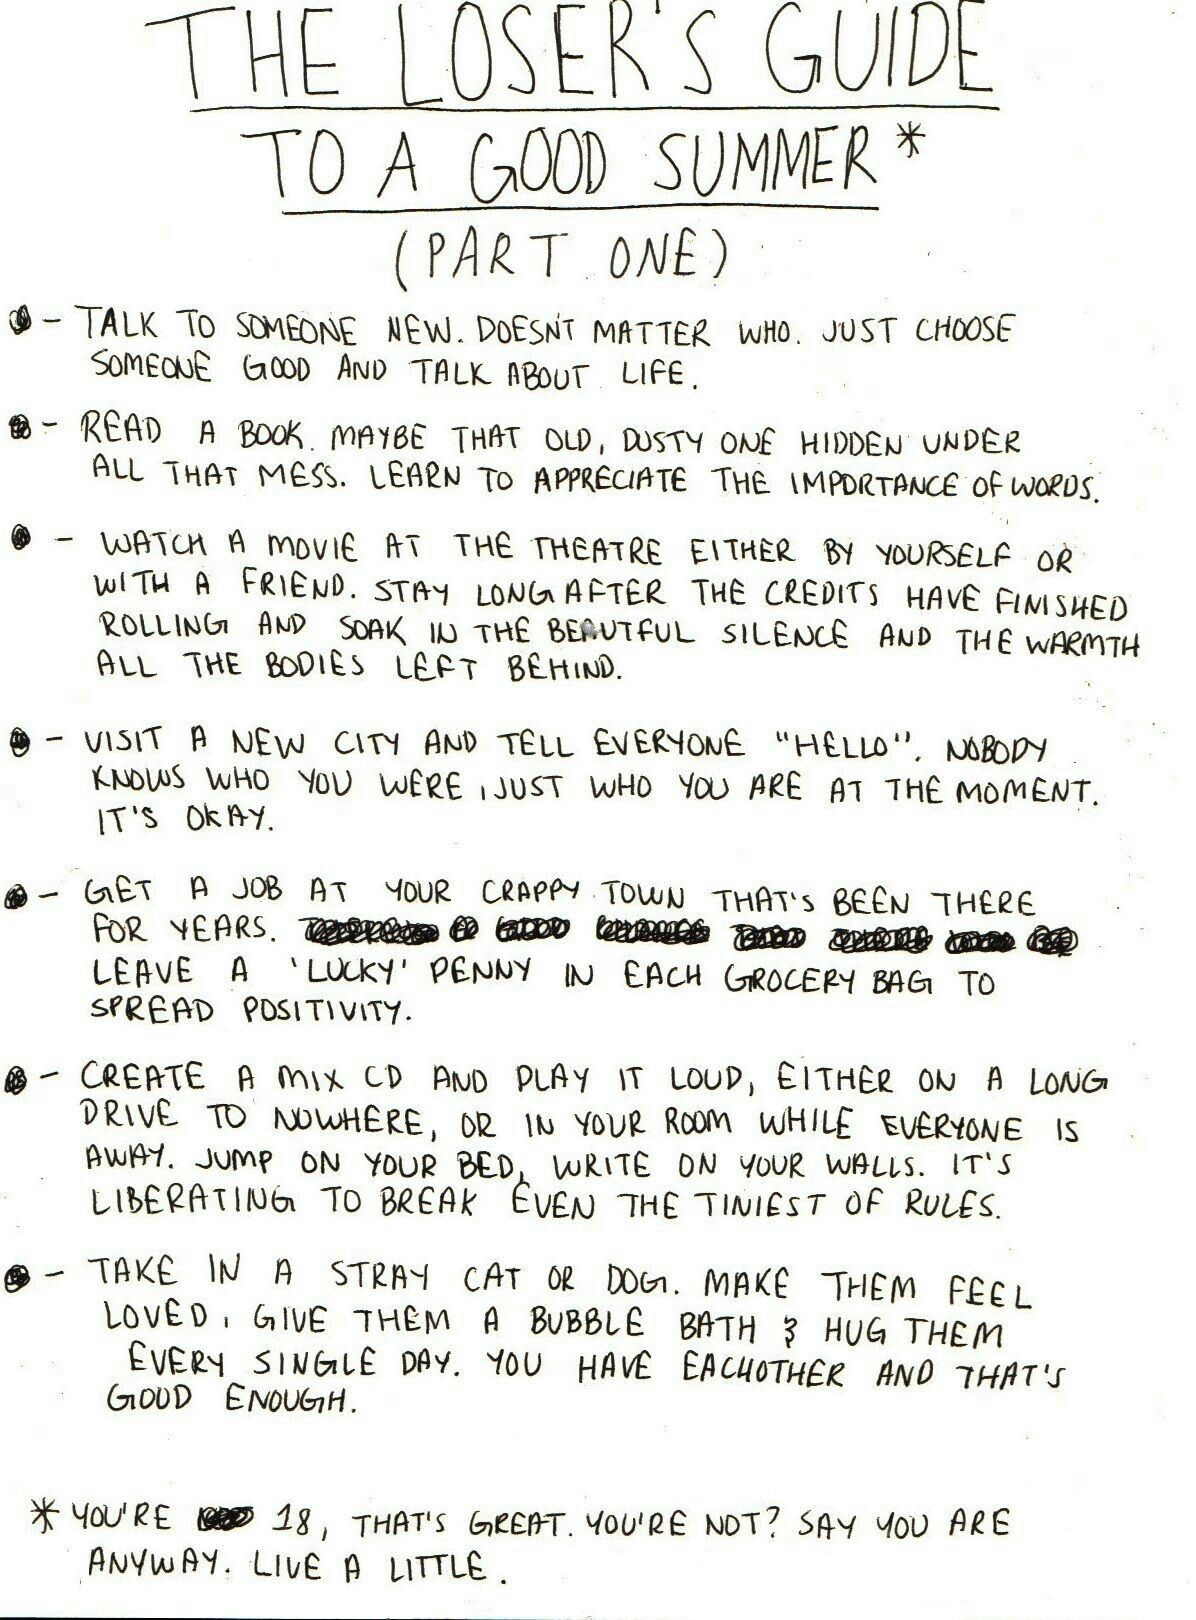 THE LOSER'S GUIDE
TO A GOOD SUMMER*
(PART ONE)
- TALK TO SOMEONE NEW. DOESN'T MATTER WHO. JUST CHOOSE
SOMEONE GOOD AND TALK ABOUT LIFE.
- READ A BOOK. MAYBE THAT OLD, DUSTY ONE HIDDEN UNDER
ALL THAT MESS. LEARN TO APPRECIATE THE IMPORTANCE OF WORDS.
- WATCH A MOVIE AT THE THEATRE EITHER BY YOURSELF OR
WITH A FRIEND. STAY LONG AFTER THE CREDITS HAVE FINISHED
ROLLING AND SOAK IN THE BEAUTFUL SILENCE AND THE WARMTH
ALL THE BODIES LEFT BEHIND.
- VISIT A NEW CITY AND TELL EVERYONE "HELLO". NOBODY
KNOWS WHO YOU WERE, JUST WHO YOU ARE AT THE MOMENT.
IT'S OKAY.
- GET A JOB AT YOUR CRAPPY TOWN THAT'S BEEN THERE
FOR YEARS.
LEAVE A 'LUCKY' PENNY IN EACH GROCERY BAG TO
SPREAD POSITIVITY.
- CREATE A MIX CD AND PLAY IT LOUD, EITHER ON A LONG
DRIVE TO NOWHERE, OR IN YOUR ROOM WHILE EVERYONE IS
AWAY. JUMP ON YOUR BED, WRITE ON YOUR WALLS. IT'S
LIBERATING TO BREAK EVEN THE TINIEST OF RULES.
- TAKE IN A STRAY CAT OR DOG. MAKE THEM FEEL
LOVED, GIVE THEM A BUBBLE BATH & HUG THEM
EVERY SINGLE DAY. YOU HAVE EACHOTHER AND THAT'S
GOOD ENOUGH.
* YOU'RE 18, THAT'S GREAT. YOU'RE NOT? SAY YOU ARE
ANYWAY. LIVE A LITTLE.